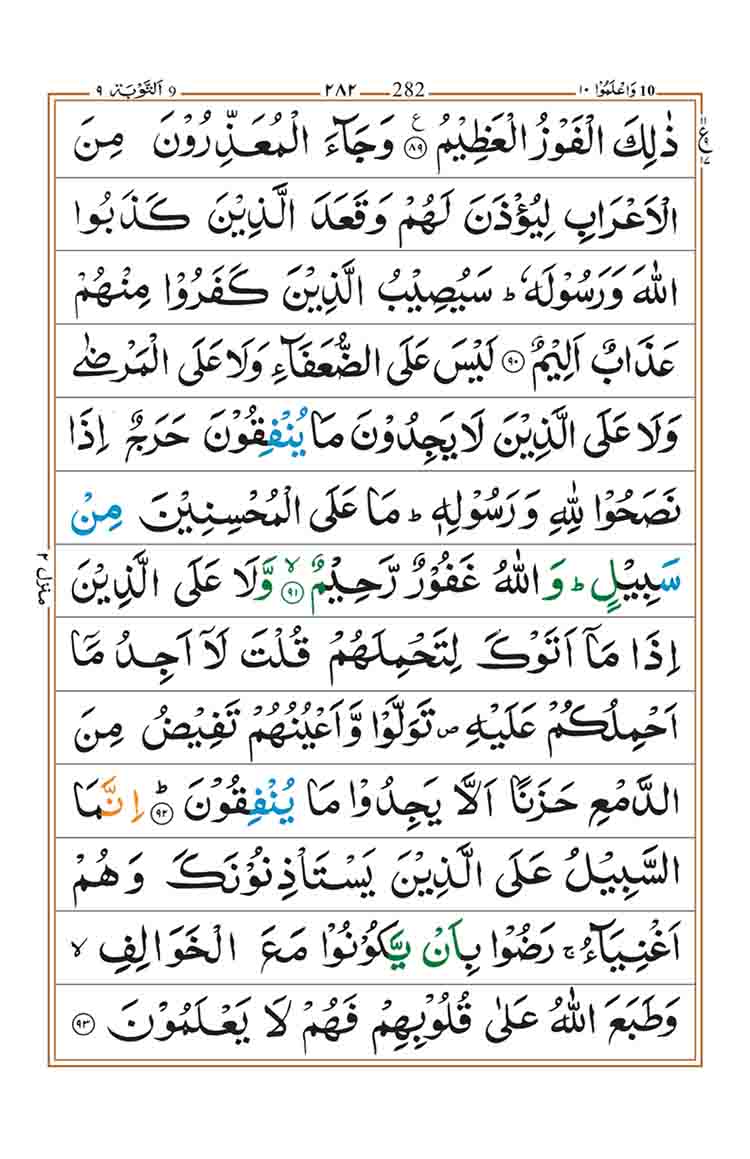 10 وَاعْلَمُوْٓا ١٠ 282 ٢٨٢ 9 اَلتَّوْبَة ٩
ذٰلِكَ الْفَوْزُ الْعَظِيْمُ ﴿٨٩﴾ ع وَجَآءَ الْمُعَذِّرُوْنَ مِنَ
الْاَعْرَابِ لِيُؤْذَنَ لَهُمْ وَقَعَدَ الَّذِيْنَ كَذَبُوا
اللّٰهَ وَرَسُوْلَهٗ ؕ سَيُصِيْبُ الَّذِيْنَ كَفَرُوْا مِنْهُمْ
عَذَابٌ اَلِيْمٌ ﴿٩٠﴾ لَيْسَ عَلَى الضُّعَفَآءِ وَلَا عَلَى الْمَرْضٰى
وَلَا عَلَى الَّذِيْنَ لَا يَجِدُوْنَ مَا يُنْفِقُوْنَ حَرَجٌ اِذَا
نَصَحُوْا لِلّٰهِ وَرَسُوْلِهٖ ؕ مَا عَلَى الْمُحْسِنِيْنَ مِنْ
سَبِيْلٍ ؕ وَاللّٰهُ غَفُوْرٌ رَّحِيْمٌ ﴿٩١﴾ ۙ وَّلَا عَلَى الَّذِيْنَ
اِذَا مَآ اَتَوْكَ لِتَحْمِلَهُمْ قُلْتَ لَآ اَجِدُ مَآ
اَحْمِلُكُمْ عَلَيْهِ ۪ تَوَلَّوْا وَّاَعْيُنُهُمْ تَفِيْضُ مِنَ
الدَّمْعِ حَزَنًا اَلَّا يَجِدُوْا مَا يُنْفِقُوْنَ ﴿٩٢﴾ ؕ اِنَّمَا
السَّبِيْلُ عَلَى الَّذِيْنَ يَسْتَاْذِنُوْنَكَ وَهُمْ
اَغْنِيَآءُ ۚ رَضُوْا بِاَنْ يَّكُوْنُوْا مَعَ الْخَوَالِفِ ۙ
وَطَبَعَ اللّٰهُ عَلٰى قُلُوْبِهِمْ فَهُمْ لَا يَعْلَمُوْنَ ﴿٩٣﴾
منزل ٢